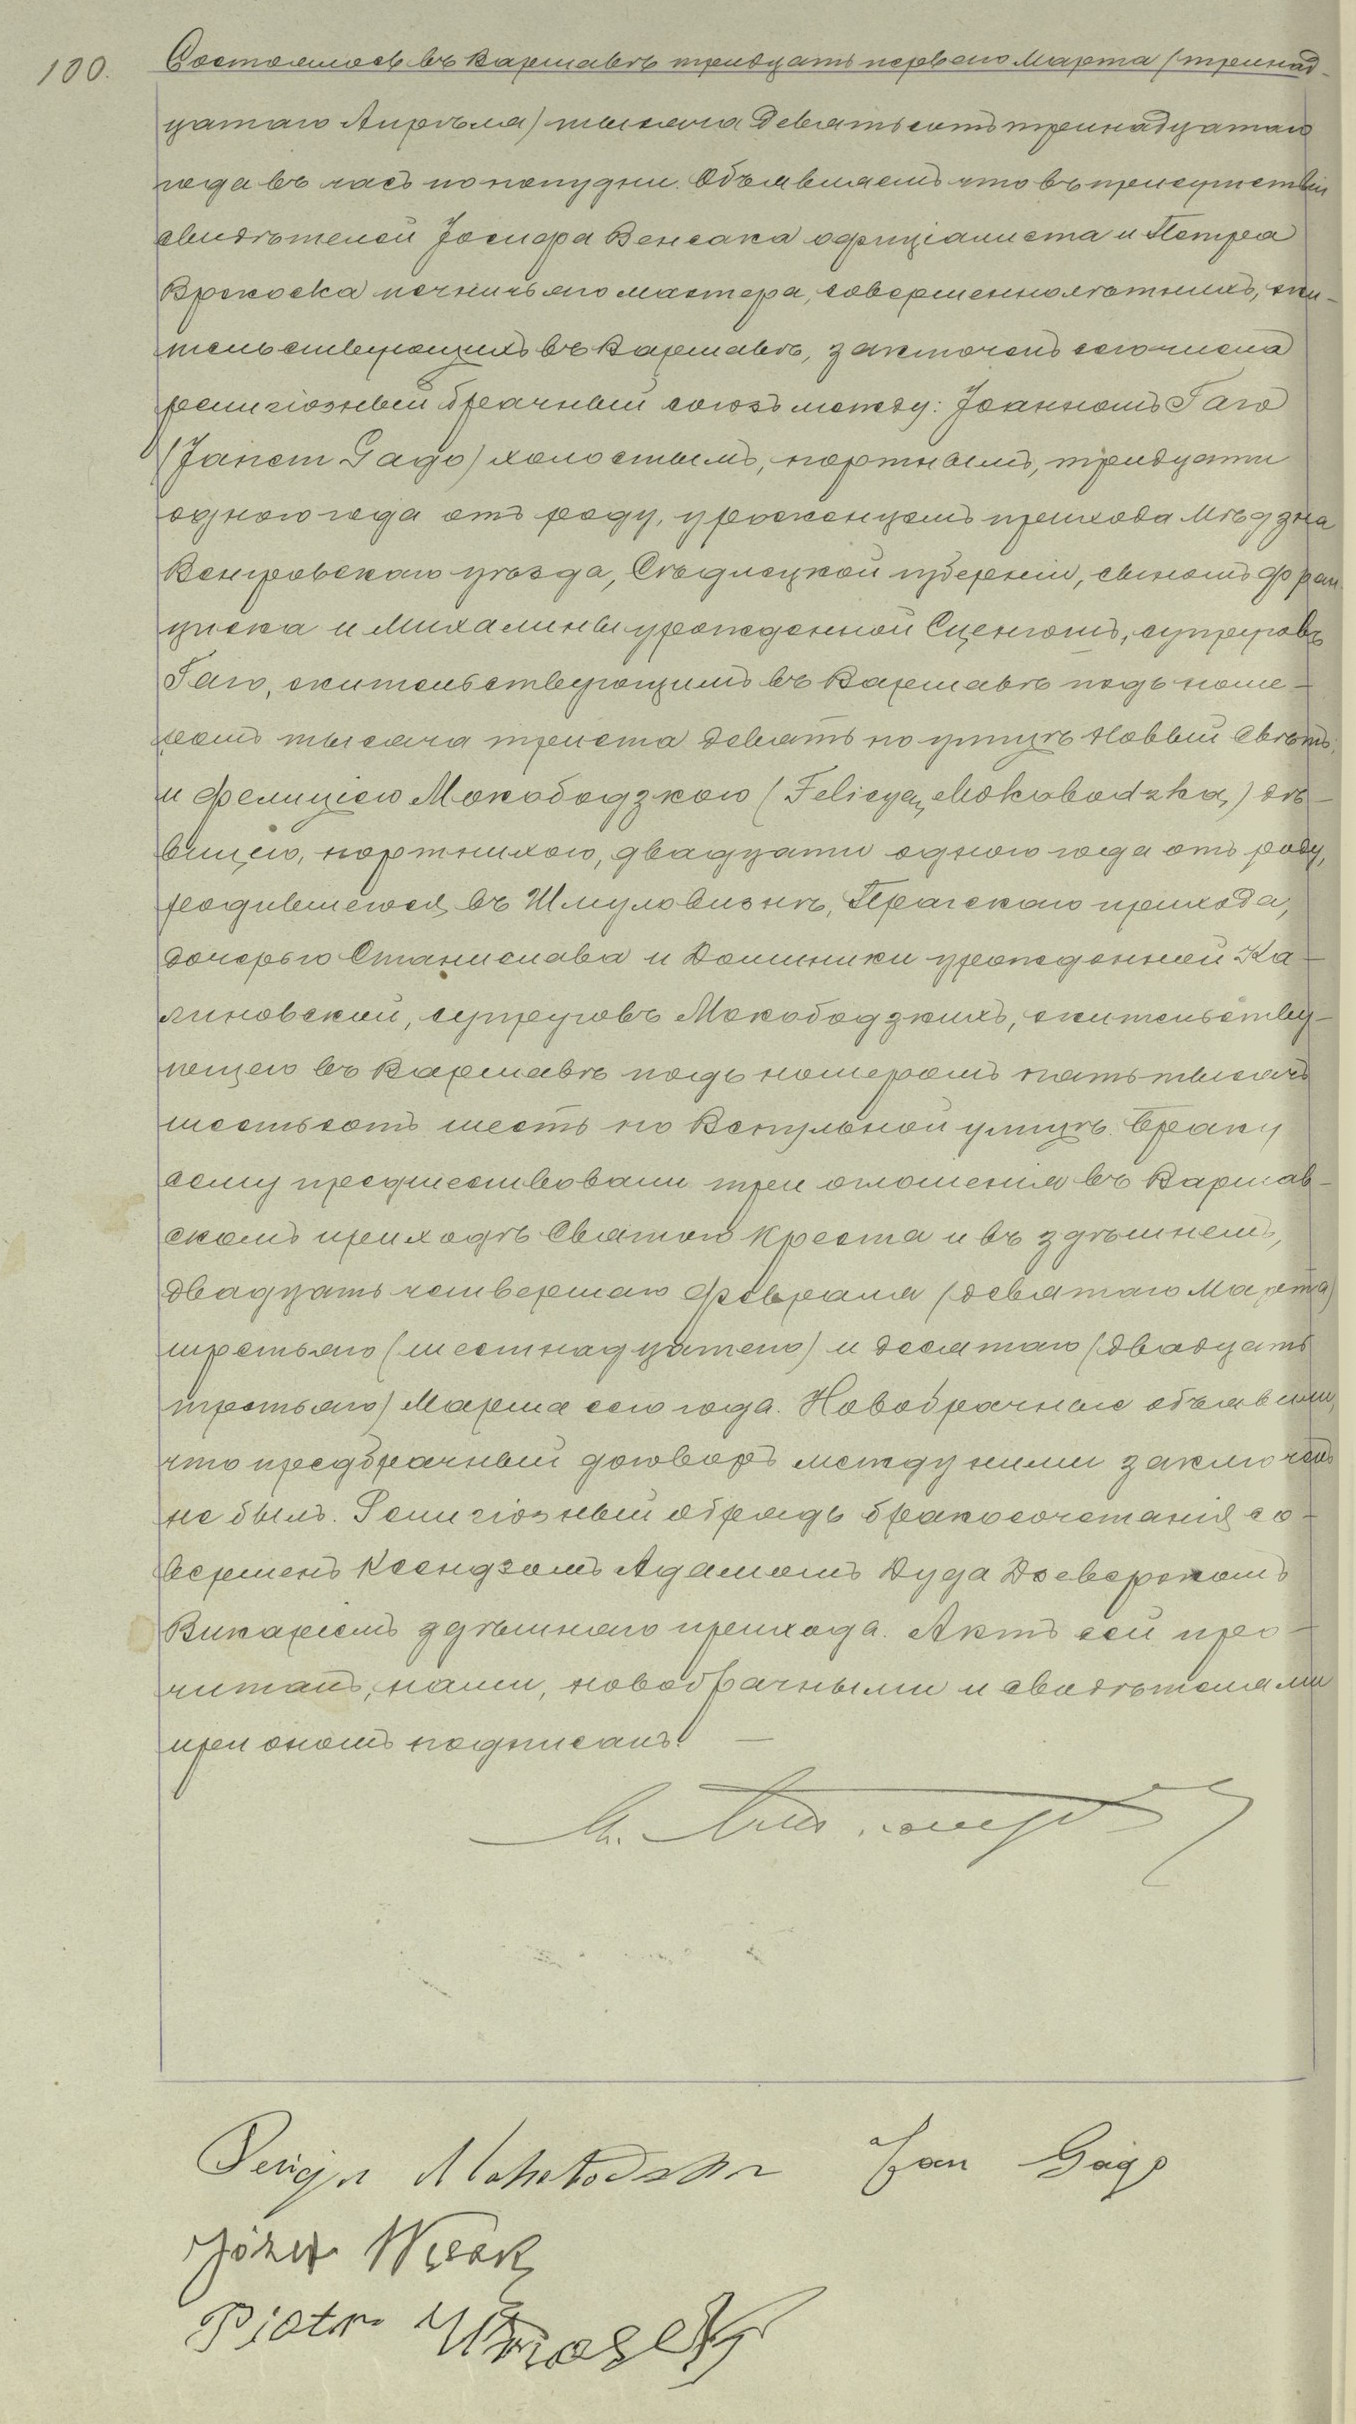 100.
Состоялось въ Варшавѣ тридцать перваго Марта (тринад-
цатаго Апрѣля) тысяча девятьсотъ тринадцатаго
года въ часъ по полудни. Объявляемъ что въ присутствіи
свидѣтелей Іосифа Венсака официалиста и Петра
печничьяго мастера, совершеннолѣтнихъ, жи-
тельствующихъ въ Варшавѣ, заключенъ сего числа
религіозный брачный союзъ между: Іоанномъ Гаго
(Janem Gago) холостымъ, портнымъ, тридцати
одного года отъ роду, уроженцемъ прихода Мѣдзна
Венгровскаго уѣзда, Сѣдлецкой губерніи, сыномъ Фран-
циска и Михалины урожденной Сценгошъ, супруговъ
Гаго, жительствующимъ въ Варшавѣ подъ номе-
ромъ тысяча триста девять по улицѣ Новый Свѣтъ;
и Фелиціею Мокободзкою (Felicyą Mokobodzką) дѣ-
вицею, портнихою, двадцати одного года отъ роду,
родившеюся въ Шмуловизнѣ, Пражскаго прихода,
дочерью Станислава и Доминики урожденной Ка-
линовской, супруговъ Мокободзкихъ, жительству-
ющею въ Варшавѣ подъ номеромъ пять тысячъ
шестьсотъ шесть по Вспульной улицѣ. Браку
сему предшествовали три оглашенія въ Варшав-
скомъ приходѣ Святаго Креста и въ здѣшнемъ,
двадцать четвертаго Февраля (девятаго Марта)
третьяго (шестнадцатаго) и десятаго (двадцать
третьяго) Марта сего года. Новобрачные объявили,
что предбрачный договоръ между ними заключенъ
не былъ. Религіозный обрядъ бракосочетанія со-
вершенъ Ксендзомъ Адамомъ Дуда
Викаріемъ здѣшняго прихода. Актъ сей про-
читанъ, нами, новобрачными и свидѣтелями
при ономъ подписанъ. —
Felicja Mokobodzka Jan Gago
Józef Węsak
Piotr